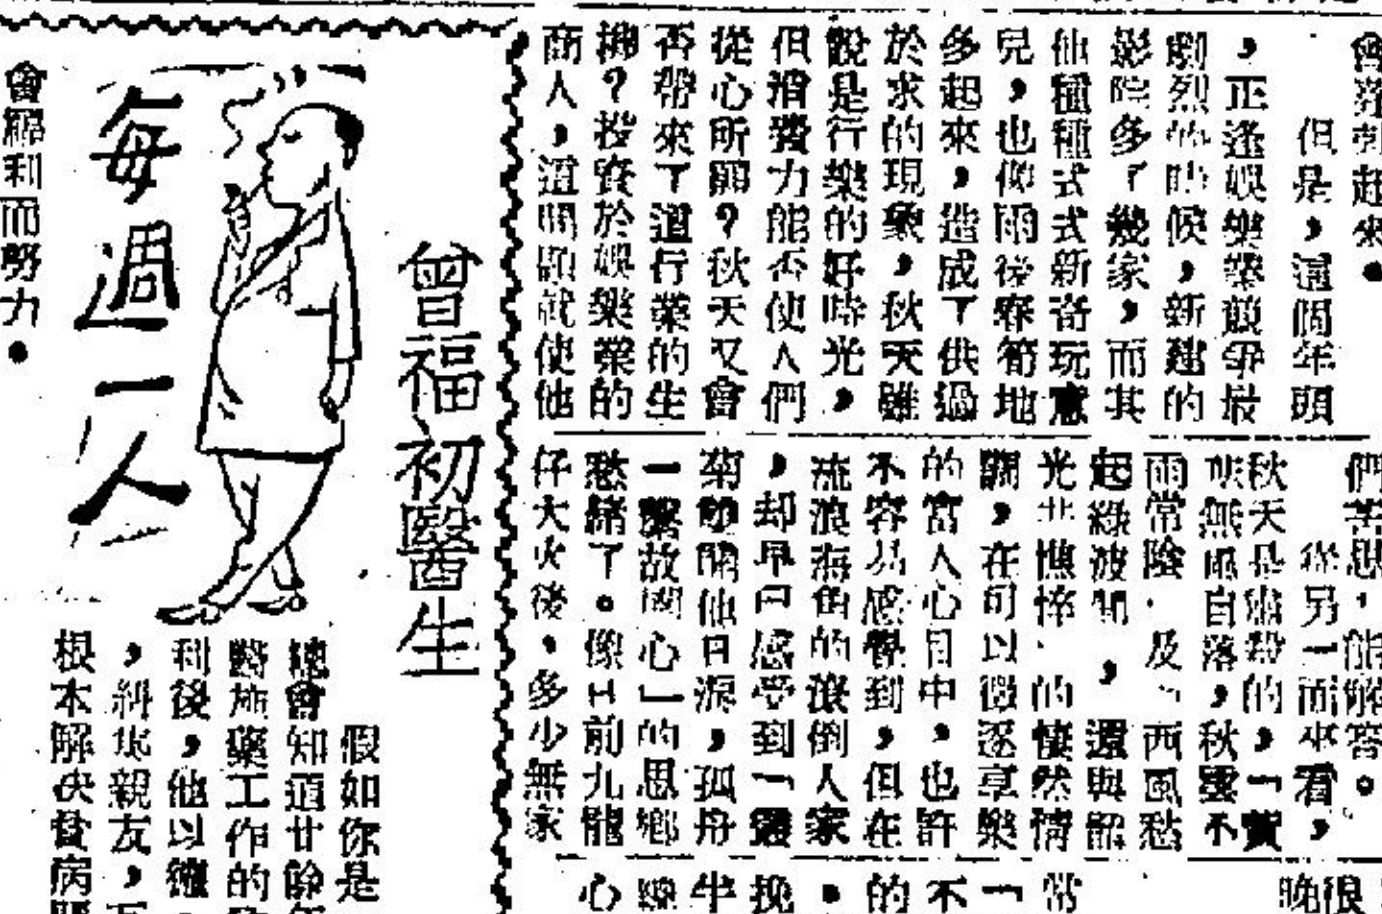 會帶到起來。
但是，這個年頭
，正逢娛樂業競爭最
劇烈的時候，新建的
影院多了幾家，而其
他種種式式新奇玩意
兒，也仰雨後春筍地
多起來，造成了供過
於求的現象，秋天雖
說是行樂的好時光，
但消費力能否使人們
從心所願？秋天又會
否帶來了這行業的生
機？投資於娛樂業的
商人，這問題就使他
們苦思，能解答。
從另一面來看，
秋天是肅殺的，「黃
無風自落，秋雲不
雨常陰」及「西風愁
起綠波間，還與韶
光共憔悴」的悽然情
調，在可以徵逐享樂
的富人心目中，也許
不容易感覺到，但在
流浪海角的潦倒人家
，却早已感受到「叢
菊兩開他日淚，孤舟
一繫故園心」的思鄉
愁緒了。像日前九龍
仔大火後，多少無家
晚很
常
「
不
的
。
挽
半
心
每週一人
曾福初醫生
假如你是
總會知道廿餘年
醫施藥工作的
利後，他以
，糾集親友，
根本解決貧病
會福利而努力。